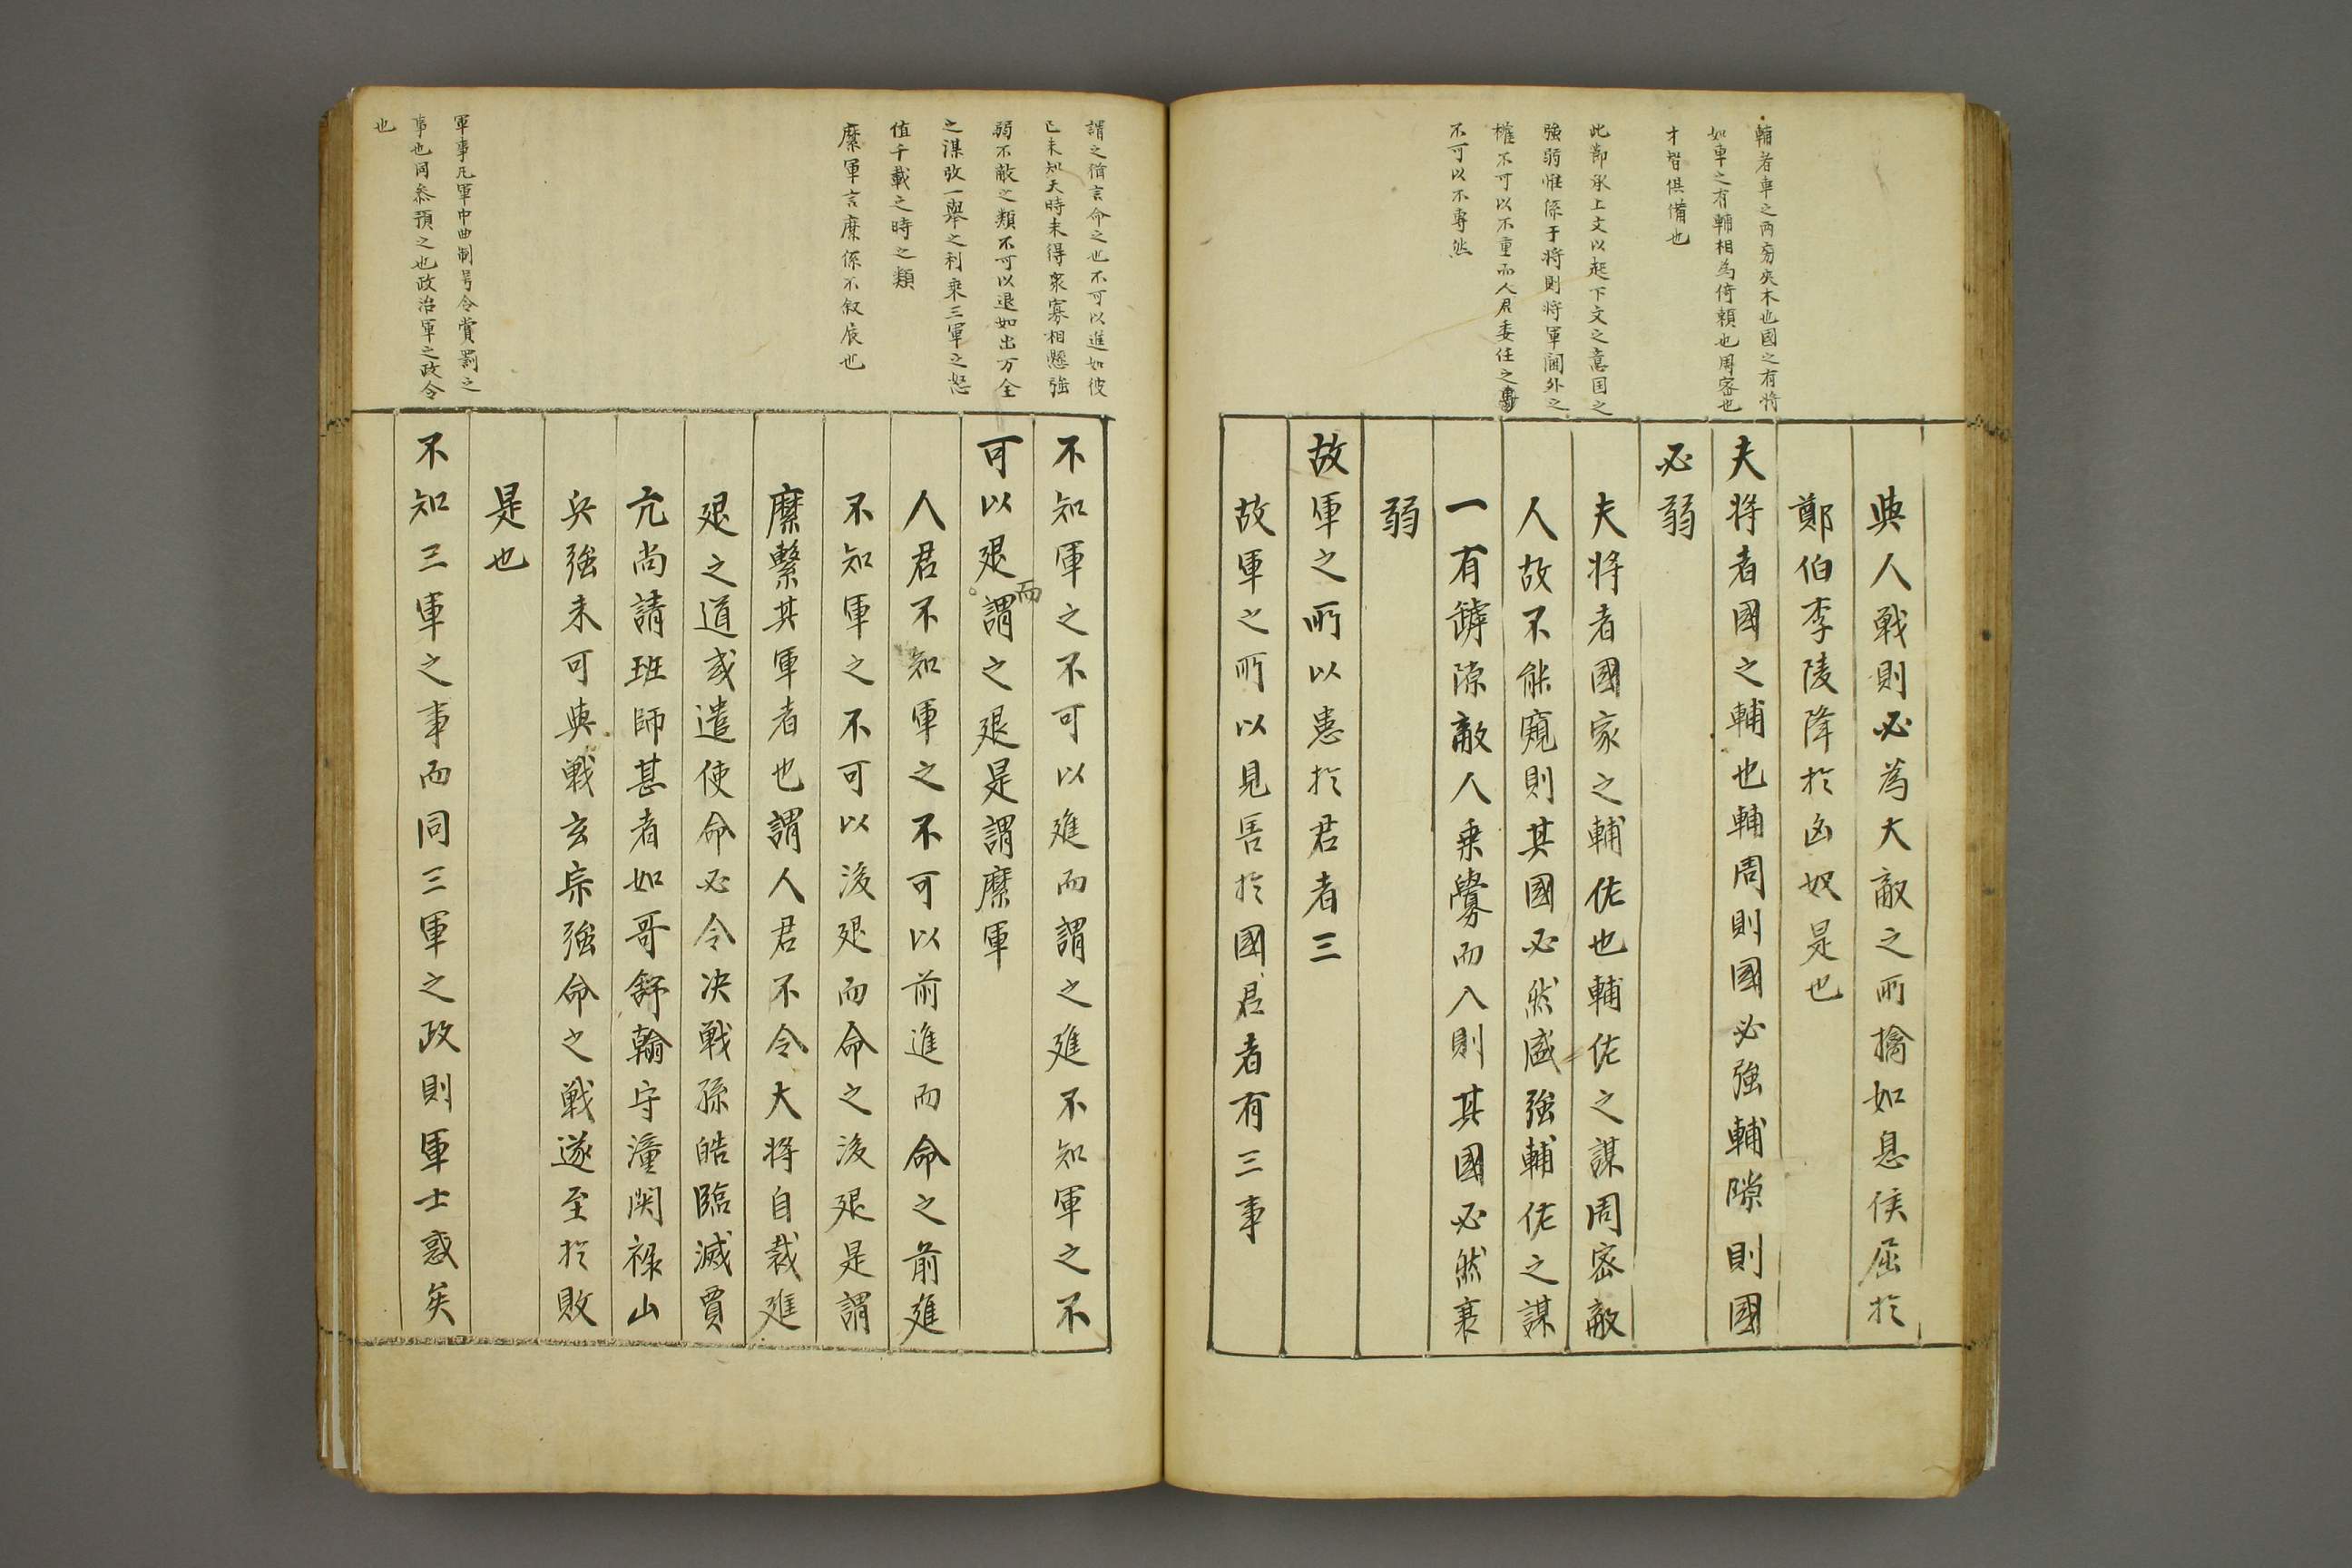 輔者車之兩旁夾木也國之有將
如車之有輔相為倚頼也周密也
才智俱備也
此節承上文以起下文之意国之
強弱惟係于将則将軍閫外之
權不可以不重而人君委任之專
不可以不專然
與人戦則必為大敵之所擒如息侯屈於
鄭伯李陵降於凶奴是也
夫将者國之輔也輔周則國必強輔隙則國
必弱
夫将者國家之輔佐也輔佐之謀周密敵
人故不能窺則其國必然盛強輔佐之謀
一有罅隙敵人乗釁而入則其國必然衰
弱
故軍之所以患於君者三
故軍之所以見害於國君者有三事
謂之猶言命之也不可以進如彼
已未知天時未得衆寡相懸強
弱不敵之類不可以退如出万全
之謀收一舉之利乗三軍之怒
值千載之時之類
縻軍言縻係不叙展也
軍事凡軍中曲制号令賞罰之
事也同叅預之也政治軍之政令
也
不知軍之不可以進而謂之進不知軍之不
可以退而謂之退是謂縻軍
人君不知軍之不可以前進而命之前進
不知軍之不可以後退而命之後退是謂
縻繫其軍者也謂人君不令大将自裁進
退之道或遣使命必令决戦孫皓臨滅賈
充尚請班師甚者如哥舒翰守潼関禄山
兵強未可與戦玄宗強命之戦遂至於敗
是也
不知三軍之事而同三軍之政則軍士惑矣